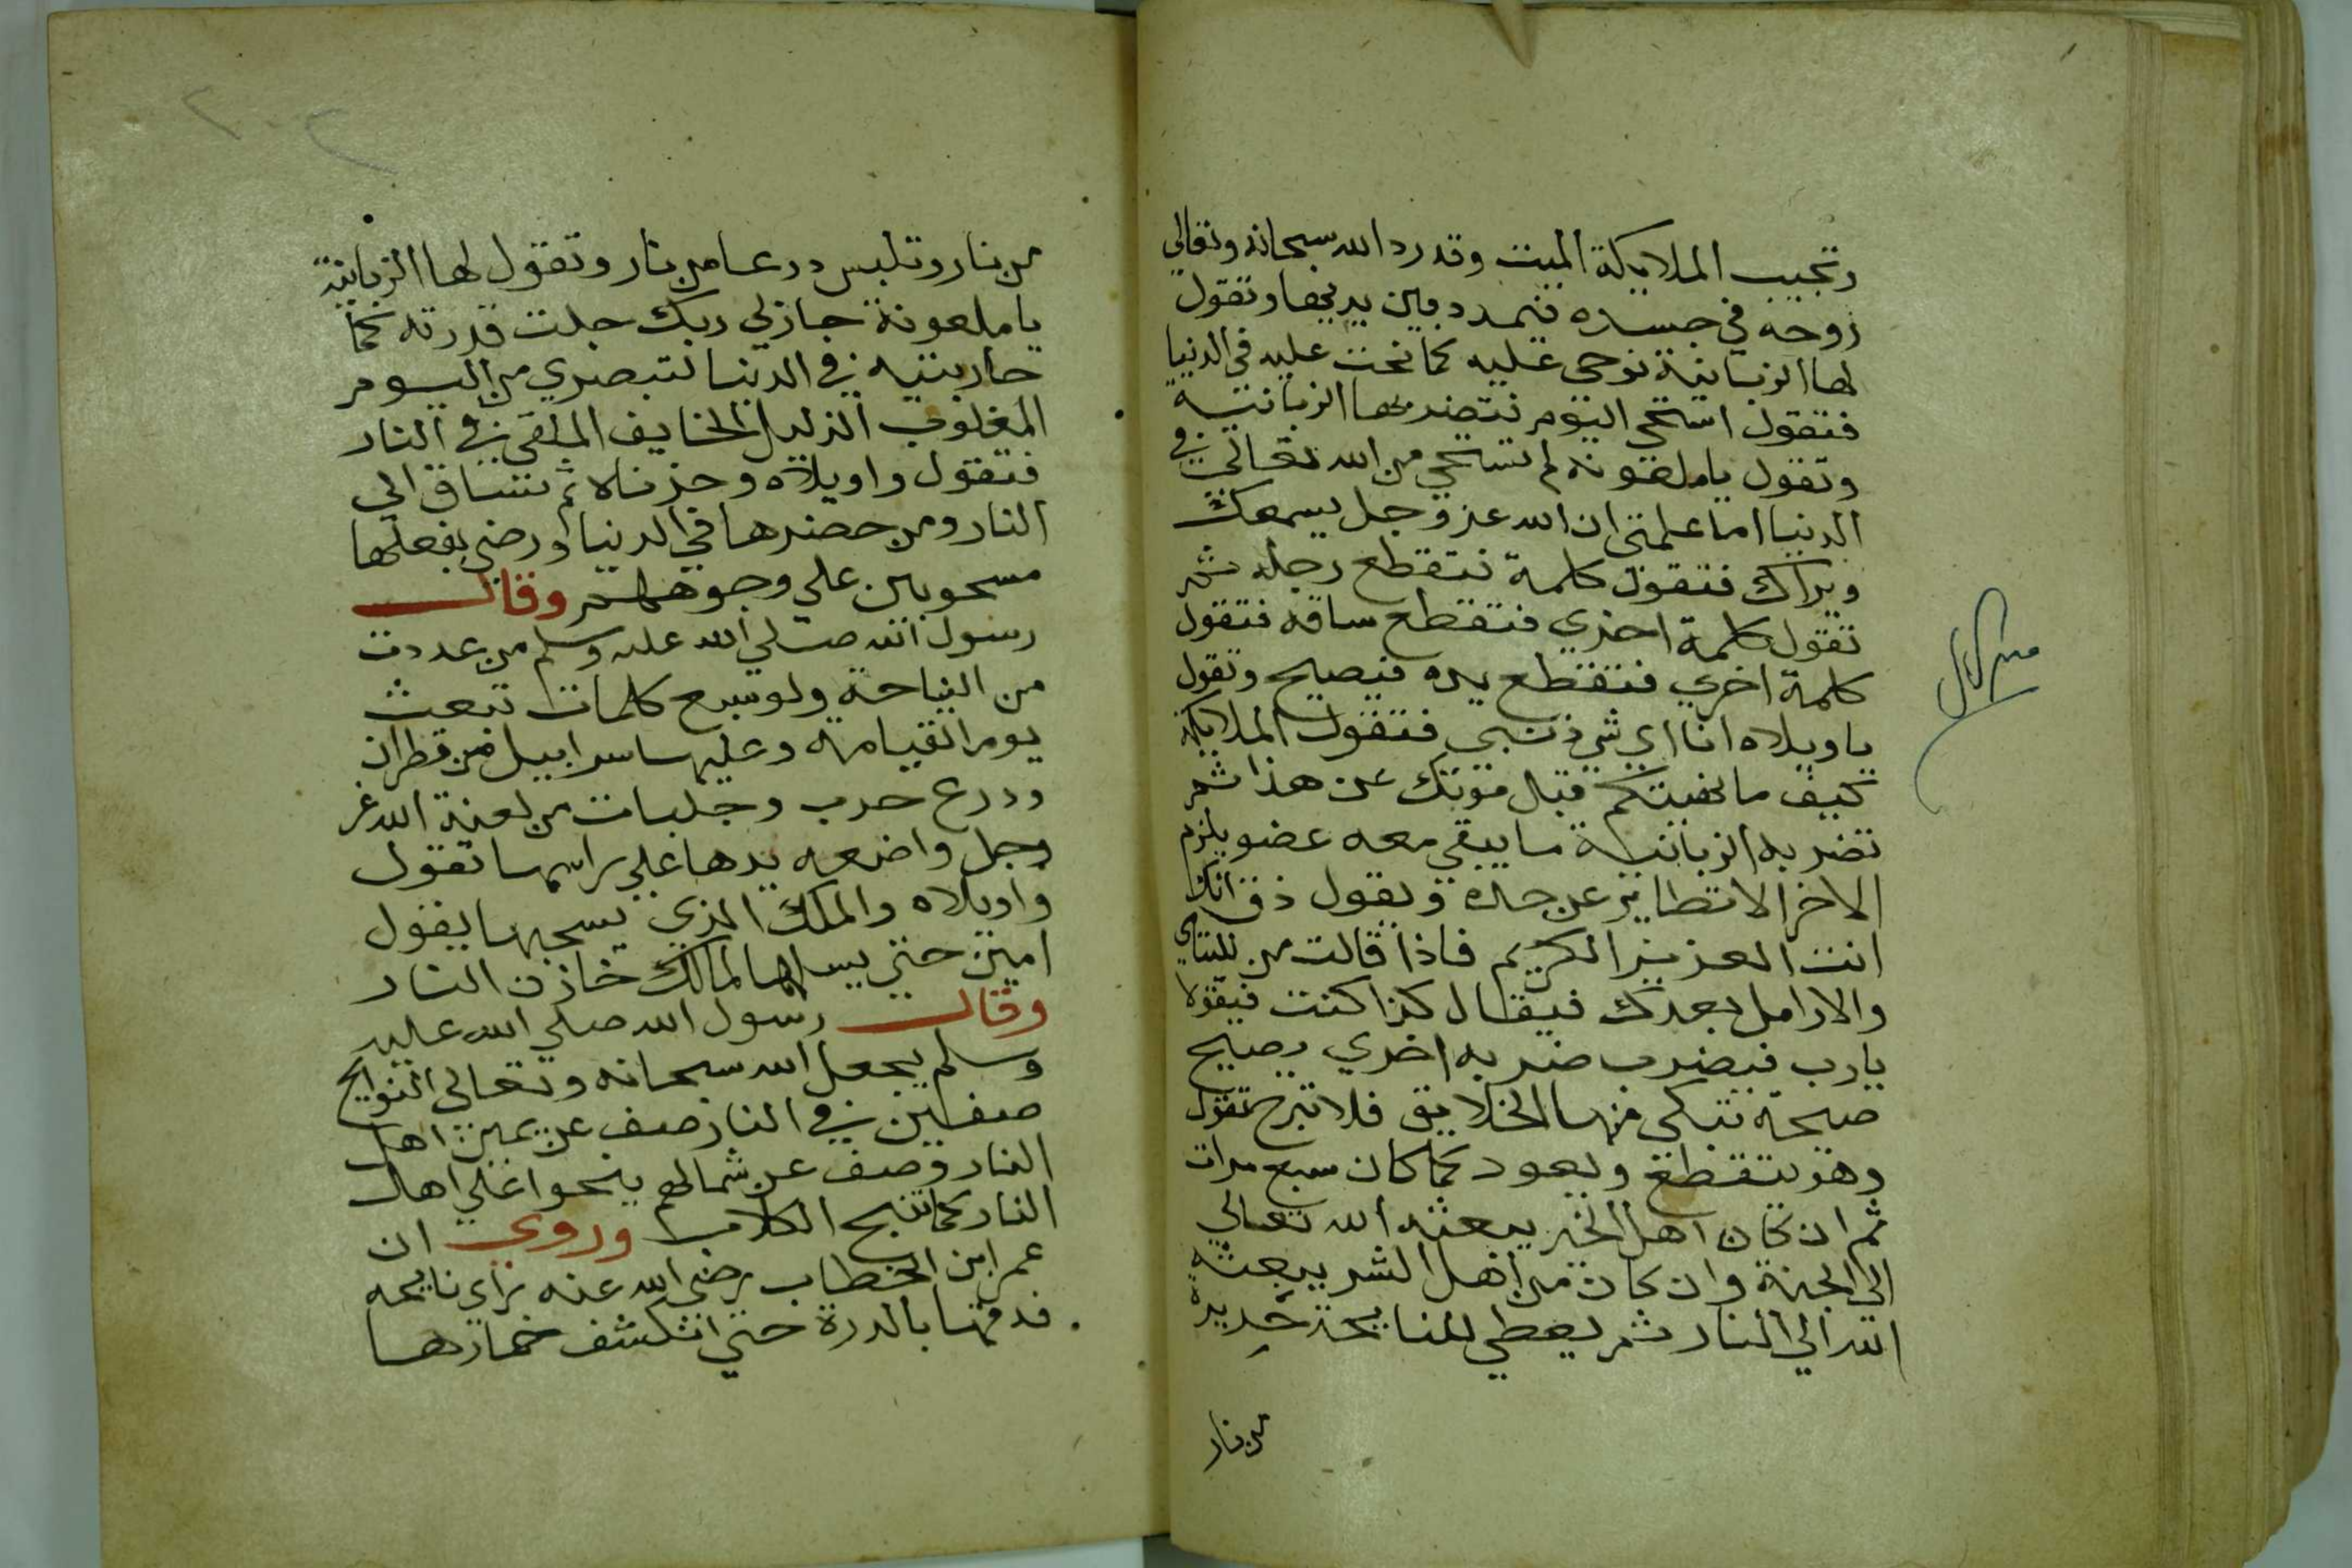 وتجيب الملايكة الميت وقد رد الله سبحانه وتعالي
روحه في جسده فتمدد بين يديها وتقول
لها الزبانية نوحي عليه كما نحت عليه في الدنيا
فتقول استحي اليوم فتضربها الزبانية
وتقول يا ملعونه لم تستحي من الله تعالي في
الدنيا اما علمتي ان الله عز وجل يسمعك
ويراك فتقول كلمة فتقطع رجله ثم
تقول كلمة اخري فتقطع ساقه فتقول
كلمة اخري فتقطع يده فيصيح وتقول
يا ويلاه انا اي شي ذنبي فتقول الملايكة
كيف ما نهيتكم قبل موتك عن هذا ثم
تضربه الزبانية ما يبقي معه عضو يلزم
الاخر الا تطاير عن حاله ويقول ذق انك
انت العزيز الكريم فاذا قالت من لليتامي
والارامل بعدك فيقال كذا كنت فيقول
يا رب فيضرب ضربه اخري يصيح
صيحة تبكي منها الخلايق فلا تبرح تقول
وهو يتقطع ويعود كما كان سبع مرات
ثم ان كان اهل الخير يبعثه الله تعالي
الي الجنة وان كان من اهل الشر يبعثه
الله الي النار ثم يعطي للنايحة حربه
من نار
من نار وتلبس درعا من نار وتقول لها الزبانية
يا ملعونة جازي ربك جلت قدرته كما
حاربتيه في الدنيا لتبصري من اليوم
المغلوب الذليل الخايف الملقي في النار
فتقول واويلاه وحزناه ثم تساق الي
النار ومن حضرها في الدنيا ورضي بفعلها
مسحوبين علي وجوههم وقال
رسول الله صلي الله عليه وسلم من عددت
من النياحة ولو سبع كلمات تبعث
يوم القيامة وعليها سرابيل من قطران
ودرع حرب وجلباب من لعنة الله عز
وجل واضعه يدها علي راسها تقول
واويلاه والملك الذي يسحبها يقول
امين حتي يسلمها لمالك خازن النار
وقال رسول الله صلي الله عليه
وسلم يجعل الله سبحانه وتعالي النوايح
صفين في النار صف عن يمين اهل
النار وصف عن شمالهم ينحوا علي اهل
النار كما تنبح الكلاب وروي ان
عمر ابن الخطاب رضي الله عنه راي نايحه
فدقها بالدرة حتي انكشف خمارها